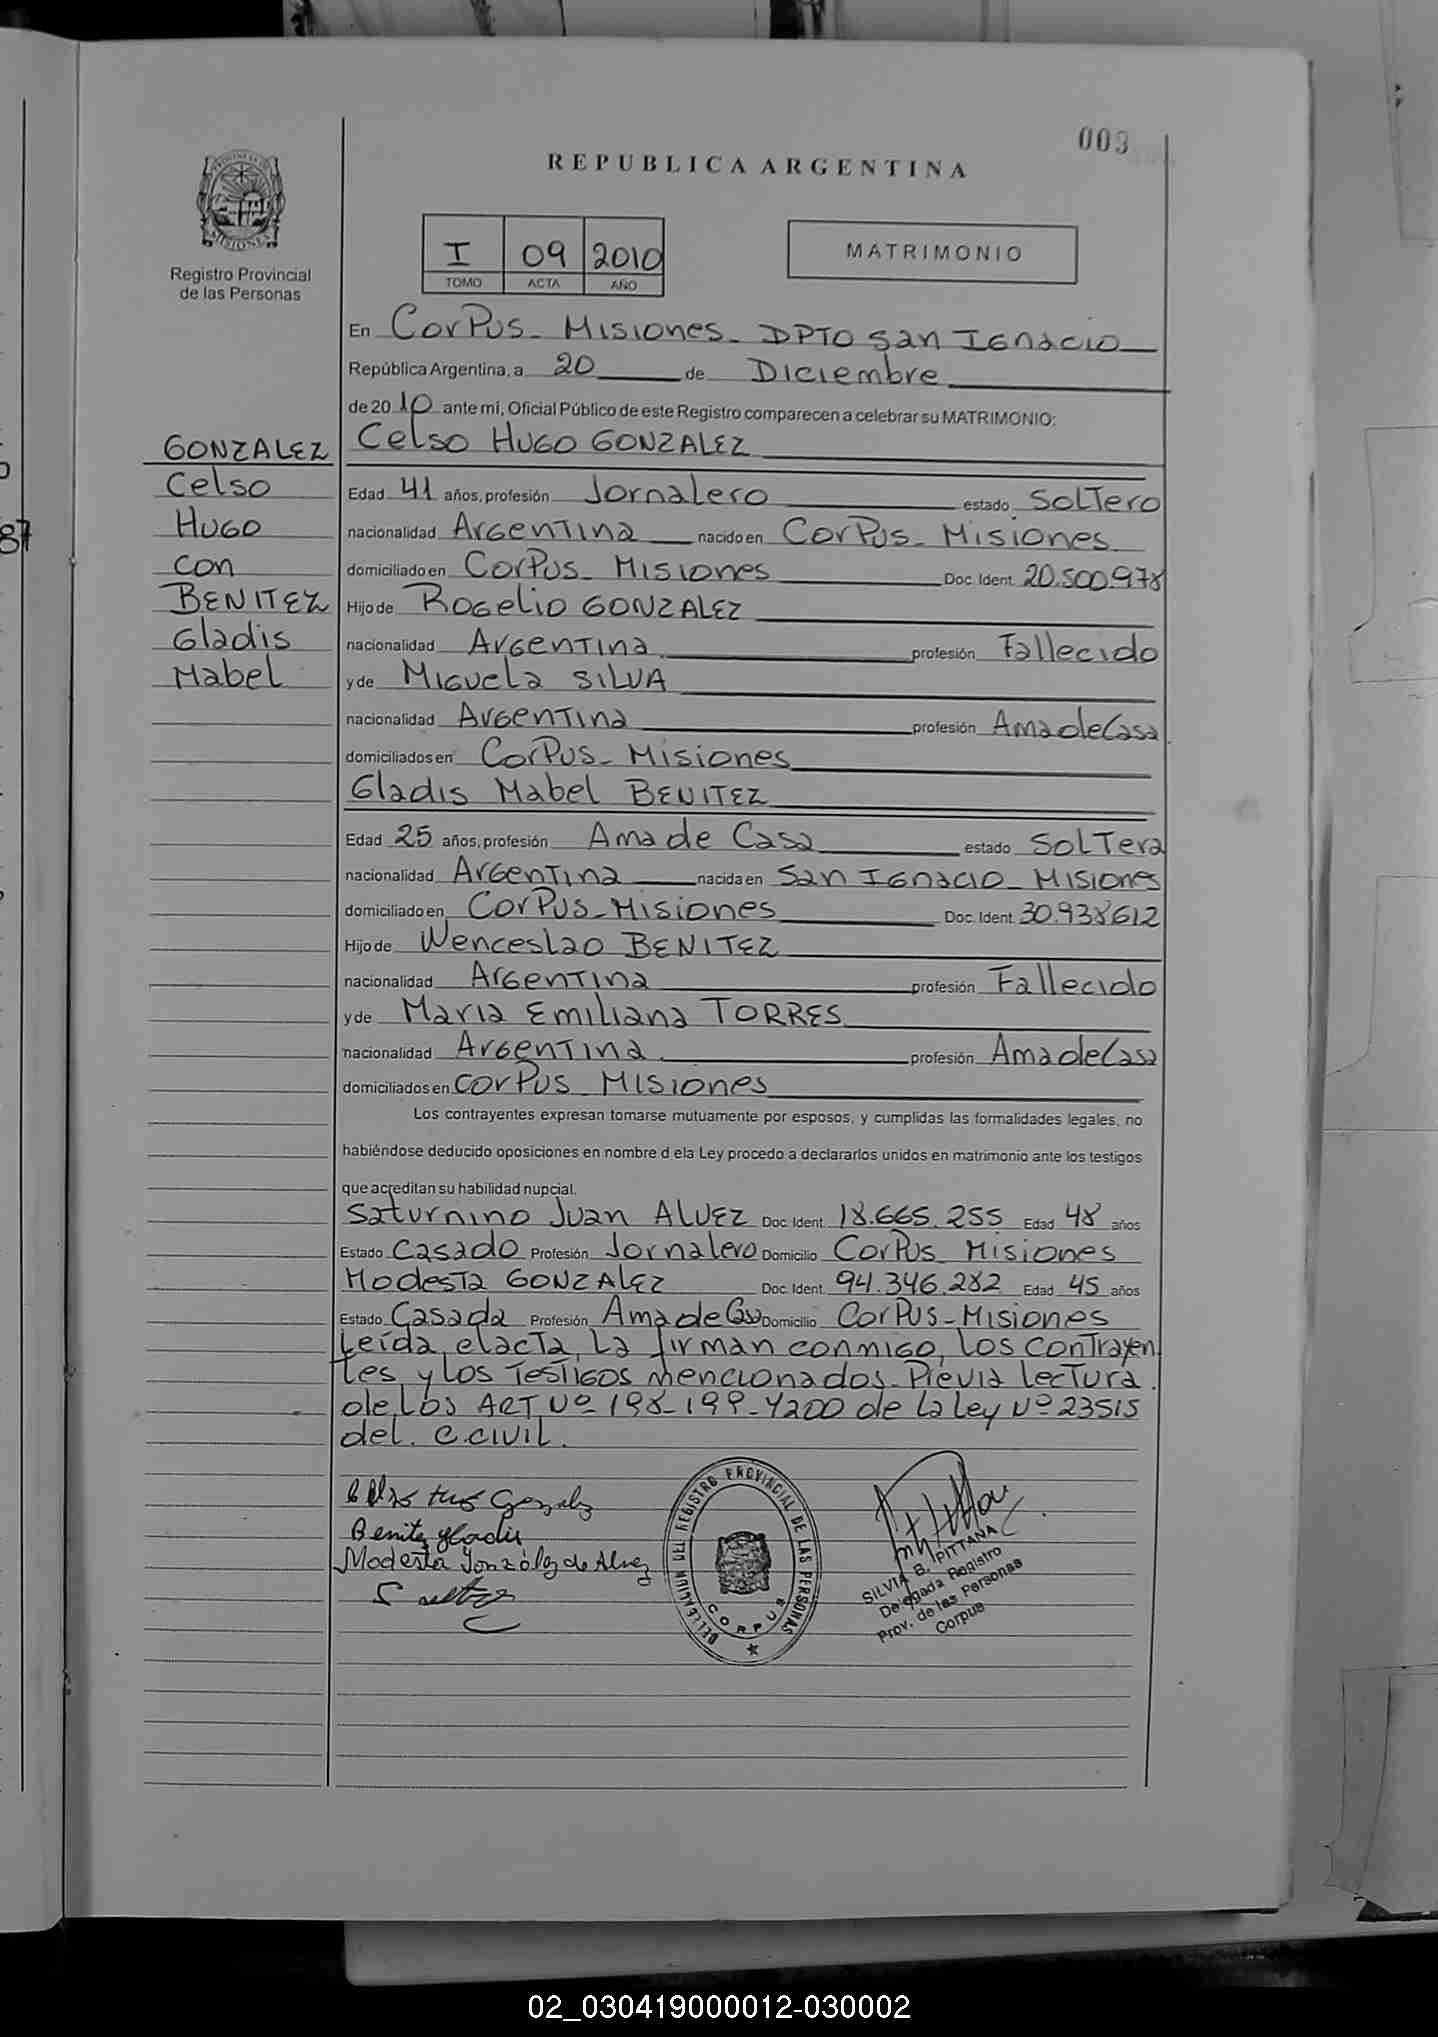 003
REPUBLICA ARGENTINA
PROVINCIA DE
MISIONES
Registro Provincial
de las Personas
I 09 2010
TOMO ACTA AÑO
MATRIMONIO
En Corpus - Misiones - DPTO San Ignacio
República Argentina, a 20 de Diciembre
de 2010 ante mí, Oficial Público de este Registro comparecen a celebrar su MATRIMONIO:
GONZALEZ
Celso
Hugo
con
BENITEZ
Gladis
Mabel
87
Celso Hugo GONZALEZ
Edad 41 años, profesión Jornalero estado Soltero
nacionalidad Argentina nacido en Corpus - Misiones
domiciliado en Corpus - Misiones Doc. Ident. 20.500.978
Hijo de Rogelio GONZALEZ
nacionalidad Argentina profesión Fallecido
y de Miguela SILVA
nacionalidad Argentina profesión Ama de Casa
domiciliados en Corpus - Misiones
Gladis Mabel BENITEZ
Edad 25 años, profesión Ama de Casa estado Soltera
nacionalidad Argentina nacida en San Ignacio - Misiones
domiciliado en Corpus - Misiones Doc. Ident. 30.938612
Hijo de Wenceslao BENITEZ
nacionalidad Argentina profesión Fallecido
y de Maria Emiliana TORRES
nacionalidad Argentina profesión Ama de Casa
domiciliados en Corpus - Misiones
Los contrayentes expresan tomarse mutuamente por esposos, y cumplidas las formalidades legales, no
habiéndose deducido oposiciones en nombre d ela Ley procedo a declararlos unidos en matrimonio ante los testigos
que acreditan su habilidad nupcial.
Saturnino Juan ALVEZ Doc. Ident. 18.665.255 Edad 48 años
Estado Casado Profesión Jornalero Domicilio Corpus - Misiones
Modesta GONZALEZ Doc. Ident. 94.346.282 Edad 45 años
Estado Casada Profesión Ama de Casa Domicilio Corpus - Misiones
Leída el acta, la firman conmigo, los contrayen
tes y los testigos mencionados. Previa lectura
de los ART Nº 198-199-y 200 de la Ley Nº 23515
del. C. CIVIL.
Celso Hugo Gonzalez
Benitez gladis
Modesta González de Alvez
DELEGACION DEL REGISTRO PROVINCIAL DE LAS PERSONAS
CORPUS
SILVIA B. PITTANA
Delegada Registro
Prov. de las Personas
Corpus
02_030419000012-030002